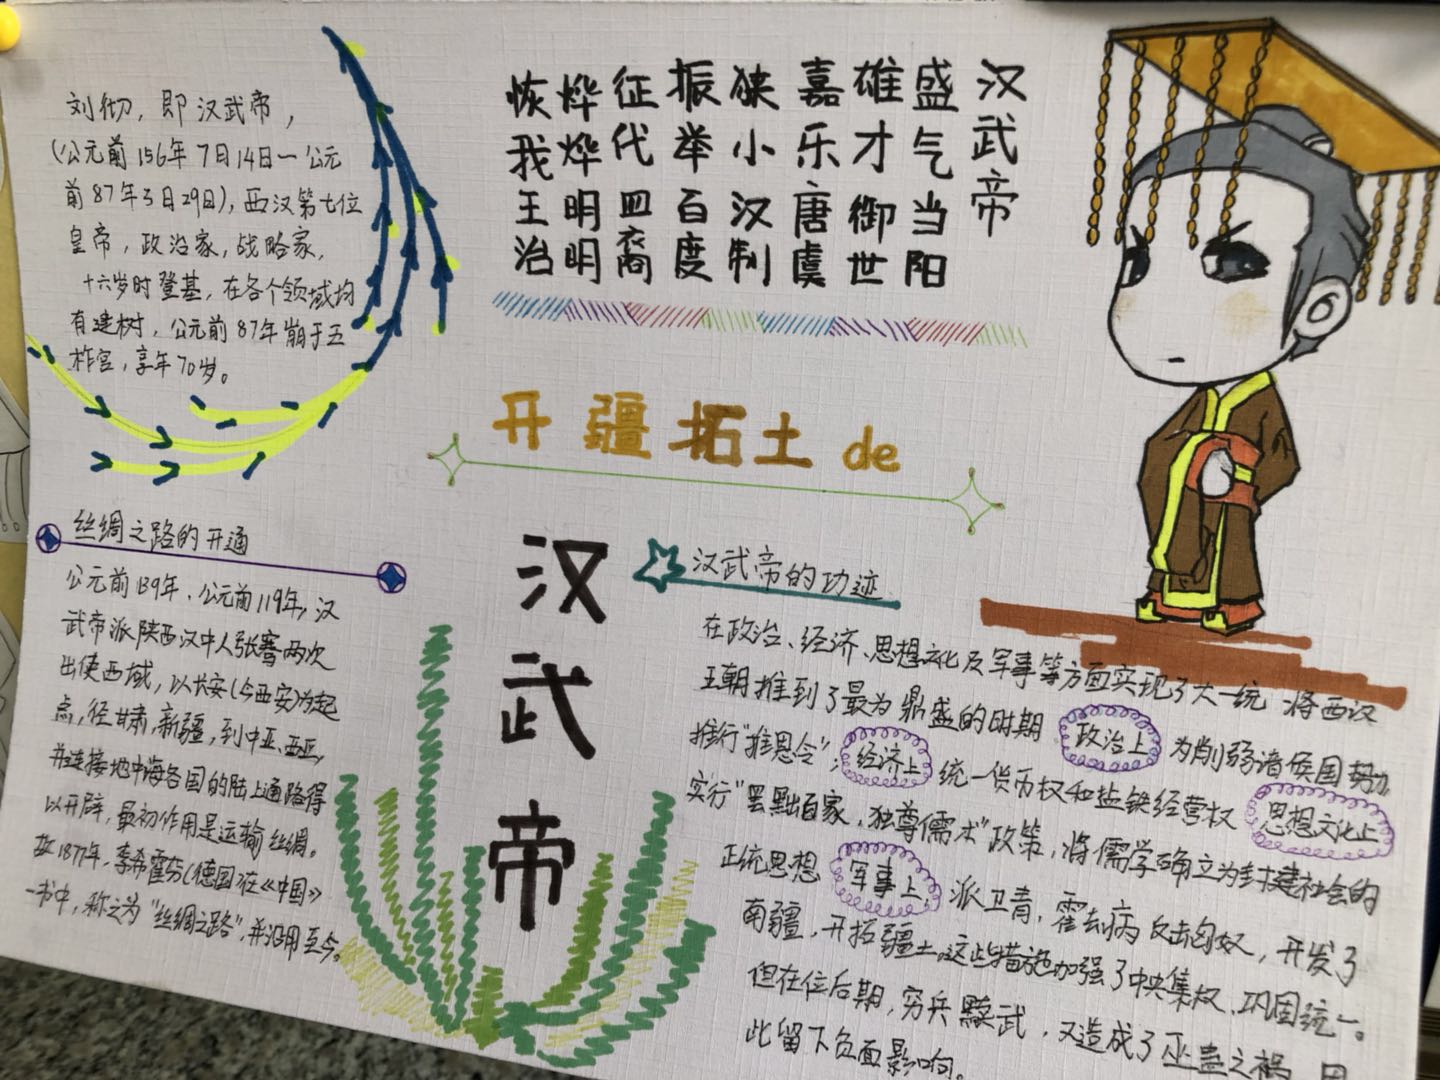 刘彻，即汉武帝，
(公元前156年7月14日一公元
前87年3月29日)，西汉第七位
皇帝，政治家，战略家，
十六岁时登基，在各个领域均
有建树，公元前87年崩于五
柞宫，享年70岁。
汉武帝
盛气当阳
雄才御世
嘉乐唐虞
狭小汉制
振举百度
征代四裔
烨烨明明
恢我王治
开疆拓土de
汉武帝
丝绸之路的开通
公元前139年、公元前119年，汉
武帝派陕西汉中人张骞两次
出使西域，以长安(今西安)为起
点，径甘肃，新疆，到中亚、西亚，
并连接地中海各国的陆上通路得
以开辟，最初作用是运输丝绸。
故1877年，李希霍芬(德国)在《中国》
一书中，称之为"丝绸之路"，并沿用至今。
汉武帝的功迹
在政治、经济、思想文化及军事等方面实现了大一统，将西汉
王朝推到了最为鼎盛的时期 政治上 为削弱诸侯国势力，
推行"推恩令"；经济上 统一货币权和盐铁经营权 思想文化上
实行"罢黜百家，独尊儒术"政策，将儒学确立为封建社会的
正统思想 军事上，派卫青，霍去病反击匈奴，开发了
南疆，开拓疆土。这些措施加强了中央集权，巩固统一。
但在位后期，穷兵黩武，又造成了巫蛊之祸，因
此留下负面影响。